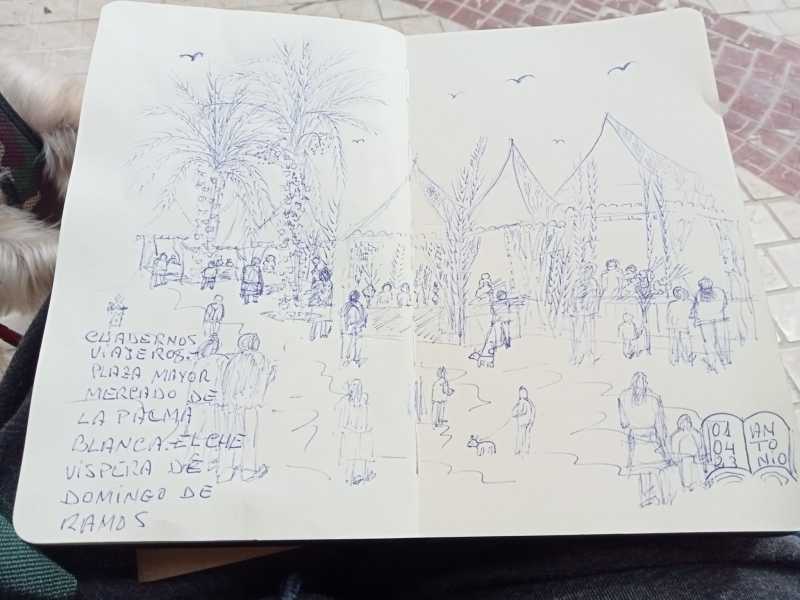 CUADERNOS
VIAJEROS.-
PLAZA MAYOR
MERCADO DE
LA PALMA
BLANCA.ELCHE
VISPERA DE
DOMINGO DE
RAMOS
01
04
23
AN
TO
NIO